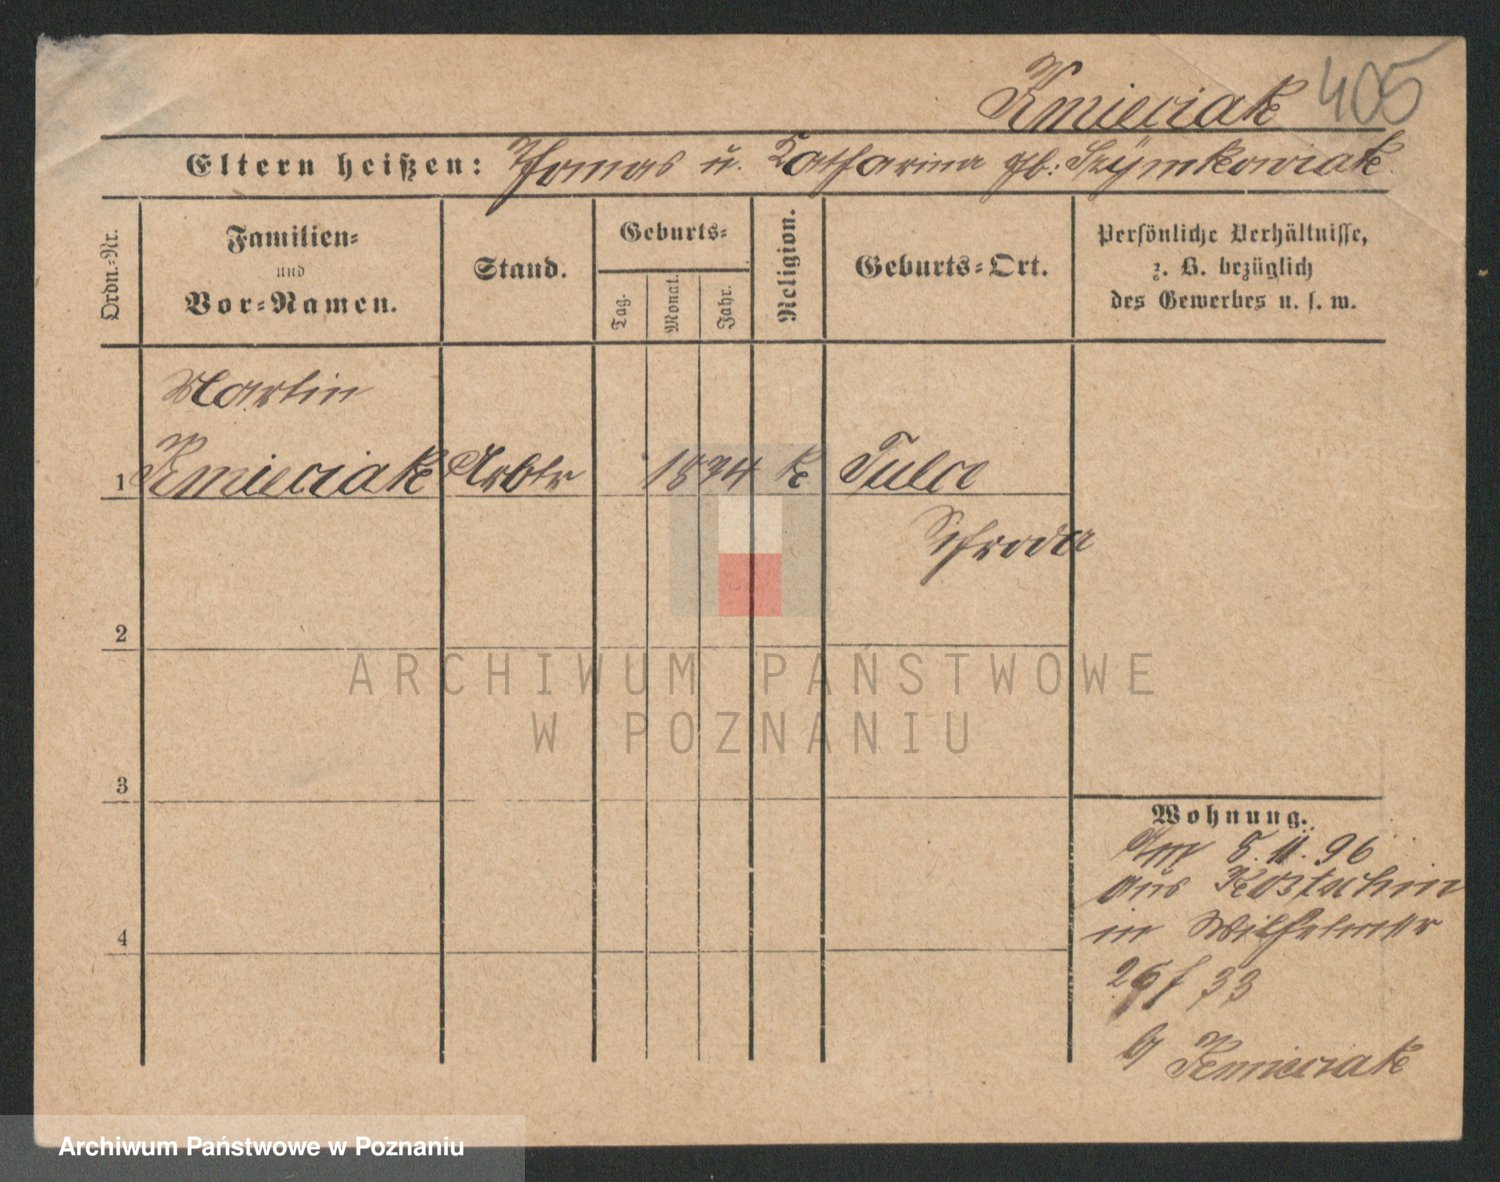 Kmieciak 405
Eltern heißen: Thomas u. Katharina gb: Szymkowiak
Ordn.-Nr.
Familien-
und
Vor-Namen.
Stand.
Geburts-
Tag.
Monat.
Jahr.
Religion.
Geburts-Ort.
Persönliche Verhältnisse,
z. B. bezüglich
des Gewerbes u. s. w.
Martin
1 Kmieciak Arbtr 1874 k Tulce
Schroda
2
3
4
Wohnung.
Am 5.11.96
aus Kostschin
in
33
b Kmieciak
ARCHIWUM PAŃSTWOWE
W POZNANIU
Archiwum Państwowe w Poznaniu